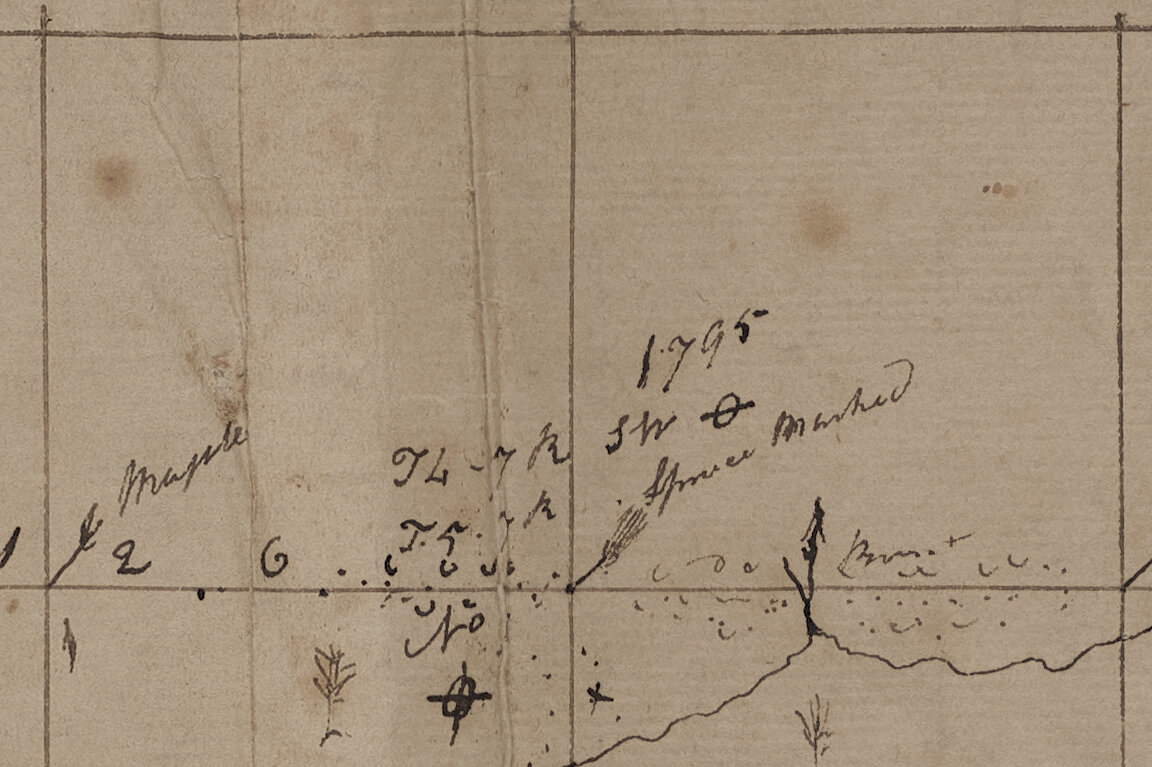 1795
SW
Spruce Marked
Maple
T4 - 7 R
T.5. 7 R
1
2
6
Burnt
No
1